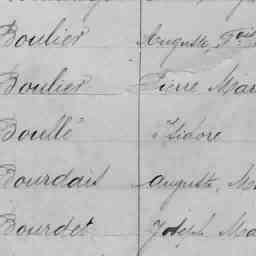 Boulier Auguste, Fois
Boulier Pierre Mar
Boullé Isidore
Bourdais Auguste, Ma
Bourdet Joseph Ma